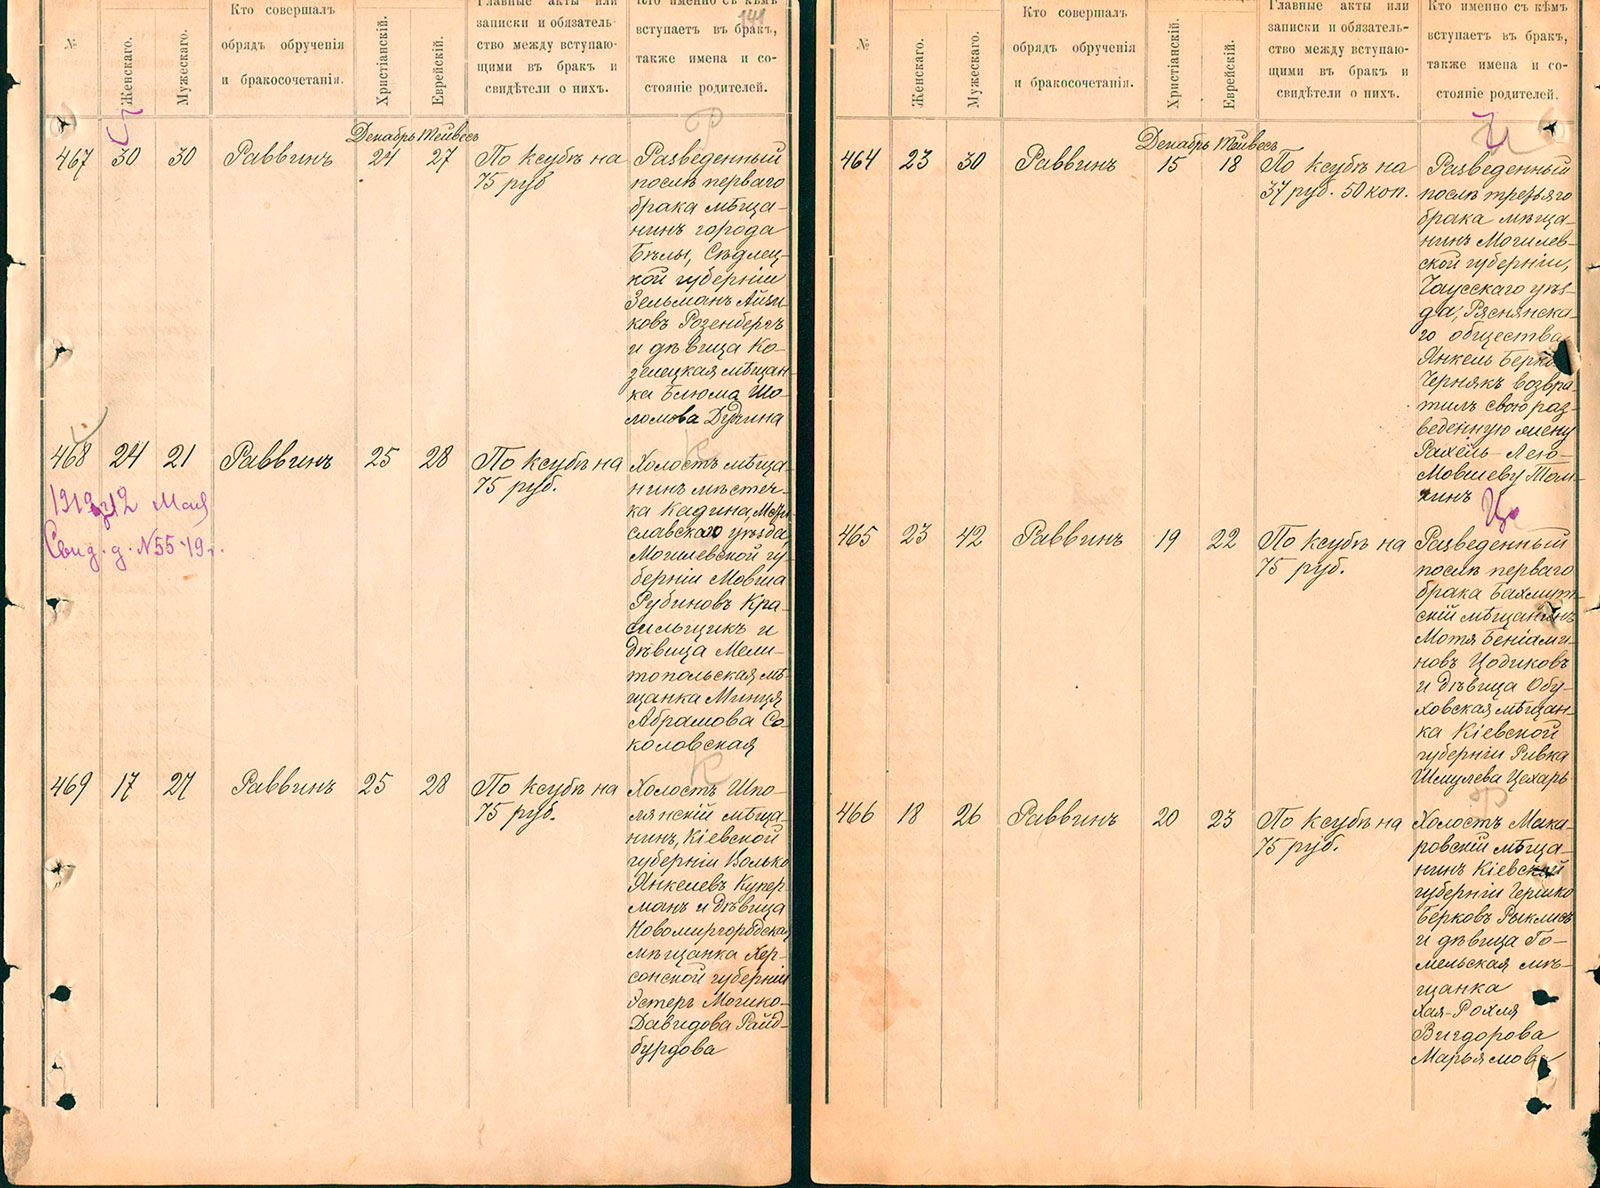 №
Женскаго.
Мужескаго.
Кто совершалъ
обрядъ обрученія
и бракосочетанія.
Христіанскій.
Еврейскій.
Главные акты или
записки и обязатель-
ство между вступаю-
щими въ бракъ и
свидѣтели о нихъ.
Кто именно съ кѣмъ
вступаетъ въ бракъ,
также имена и со-
стояніе родителей.
141
Декабрь Тейвесъ
467 30 30 Раввинъ 24 27
По ксубѣ на
75 руб
Разведенный
послѣ перваго
брака мѣща-
нинъ города
Бѣлы, Сѣдлец-
кой губерніи
Зельманъ Айзи-
ковъ Розенбергъ
и дѣвица Ко-
зелецкая мѣщан-
ка Блюма Шо-
ломова Дудкина
468 24 21 Раввинъ 25 28
По ксубѣ на
75 руб.
1919 г 12 Мая
Свид. д. №55-19 г.
Холостъ мѣща-
нинъ мѣстеч-
ка Кадина Мсти-
славскаго уѣзда
Могилевской гу-
берніи Мовша
Рубиновъ Кра-
сильщикъ и
дѣвица Мели-
топольская мѣ-
щанка Минця
Абрамова Со-
коловская
469 17 27 Раввинъ 25 28
По ксубѣ на
75 руб.
Холостъ Шпо-
лянскій мѣща-
нинъ, Кіевской
губерніи Волько
Янкелевъ Купер-
манъ и дѣвица
Новомиргородская
мѣщанка Хер-
сонской губерніи
Эстеръ Мошко-
Давидова Райд-
бурдова
№
Женскаго.
Мужескаго.
Кто совершалъ
обрядъ обрученія
и бракосочетанія.
Христіанскій.
Еврейскій.
Главные акты или
записки и обязатель-
ство между вступаю-
щими въ бракъ и
свидѣтели о нихъ.
Кто именно съ кѣмъ
вступаетъ въ бракъ,
также имена и со-
стояніе родителей.
Декабрь Тейвесъ
464 23 30 Раввинъ 15 18
По ксубѣ на
37 руб. 50 коп.
Ч
Разведенный
послѣ третьяго
брака мѣща-
нинъ Могилев-
ской губерніи,
Чаусскаго уѣз-
да, Ряснянска-
го общества
Янкель Берко
Чернякъ возвра-
тилъ свою раз-
веденную жену
Рахель-Лею
Мовшеву Том-
кинъ
465 23 42 Раввинъ 19 22
По ксубѣ на
75 руб.
Ц
Разведенный
послѣ перваго
брака Бахмут-
скій мѣщанинъ
Мотя Беніами-
новъ Цодиковъ
и дѣвица Обу-
ховская мѣщан-
ка Кіевской
губерніи Ривка
Шмулева Цехарь
466 18 26 Раввинъ 20 23
По ксубѣ на
75 руб.
Р
Холостъ Мака-
ровскій мѣща-
нинъ Кіевской
губерніи Гершко
Берковъ Рыклисъ
и дѣвица Го-
мельская мѣ-
щанка
Хая-Рохля
Вигдорова
Марьямова